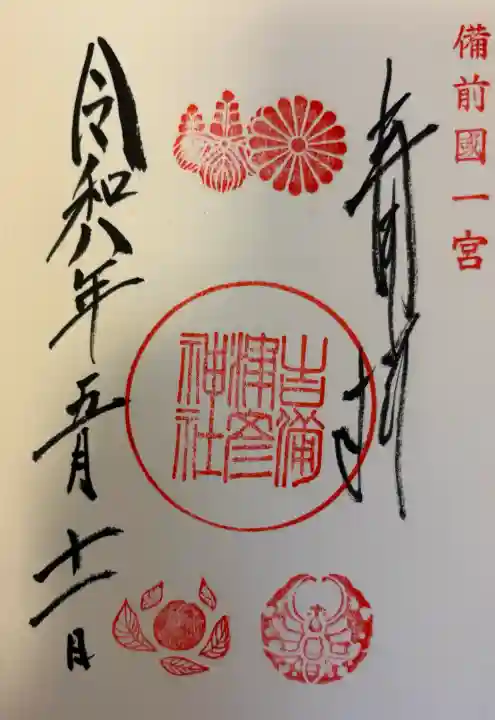 備前國一宮
奉拝
吉備
津彦
神社
令和八年五月十一日